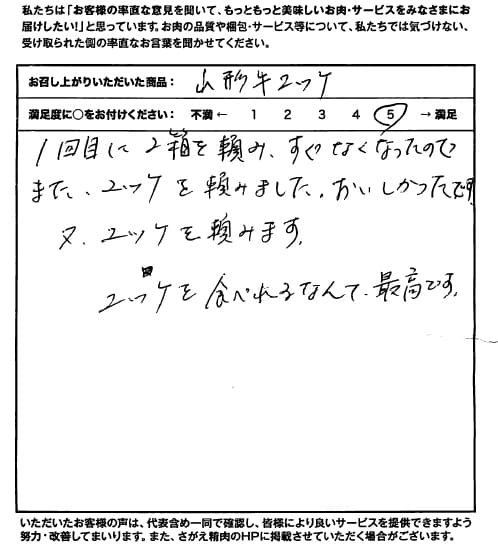 私たちは「お客様の率直な意見を聞いて、もっともっと美味しいお肉・サービスをみなさまにお
届けしたい!」と思っています。お肉の品質や梱包・サービス等について、私たちでは気づけない、
受け取られた側の率直なお言葉を聞かせてください。
お召し上がりいただいた商品: 山形牛ユッケ
満足度に○をお付けください: 不満 ← 1 2 3 4 5 → 満足
1回目に2箱を頼み、すぐなくなったので
また、ユッケを頼みました。おいしかったです。
又、ユッケを頼みます。
ユッケを食べれるなんて、最高です。
いただいたお客様の声は、代表含め一同で確認し、皆様により良いサービスを提供できますよう
努力・改善してまいります。また、さがえ精肉のHPに掲載させていただく場合がございます。